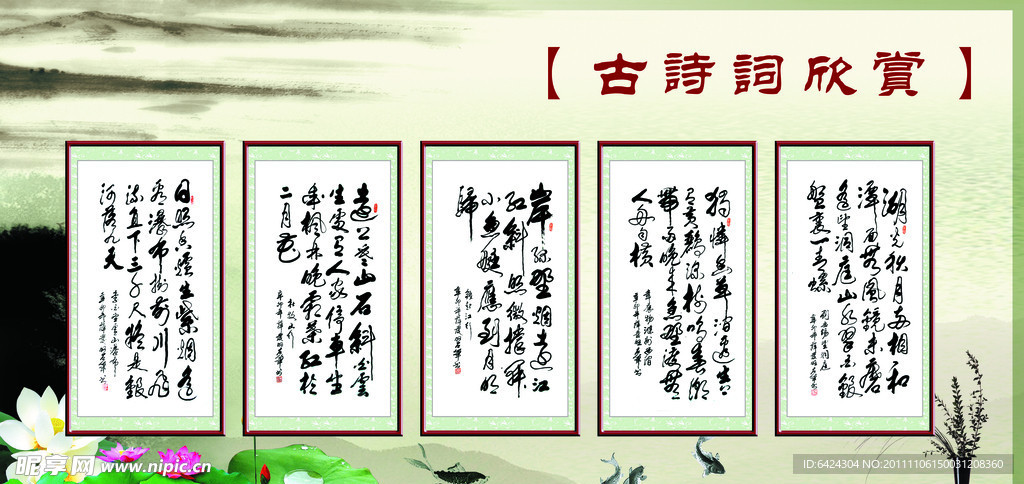 【 古詩詞欣賞 】
日照香爐生紫烟遙
看瀑布掛前川飛
流直下三千尺疑是銀
河落九天
李白望廬山瀑布
遠上寒山石斜白雲
生處有人家停車坐
愛楓林晚霜葉紅於
二月花
杜牧山行
岸 野烟遠江
紅斜照微撑
小魚艇應到月明
歸
獨憐幽草澗邊生上
有黃鸝深樹鳴春潮
帶雨晚來急野渡無
人舟自橫
韋應物滁州西澗
湖光秋月兩相和
潭面無風鏡未磨
遙望洞庭山水翠白銀
盤裏一青螺
劉禹錫望洞庭
昵享网 www.nipic.cn
ID:6424304 NO:20111106150031208360